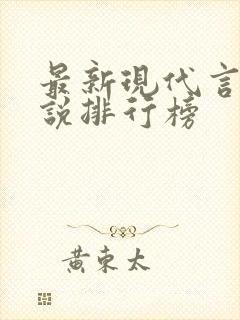 最新現代言
說排行榜
黃東太